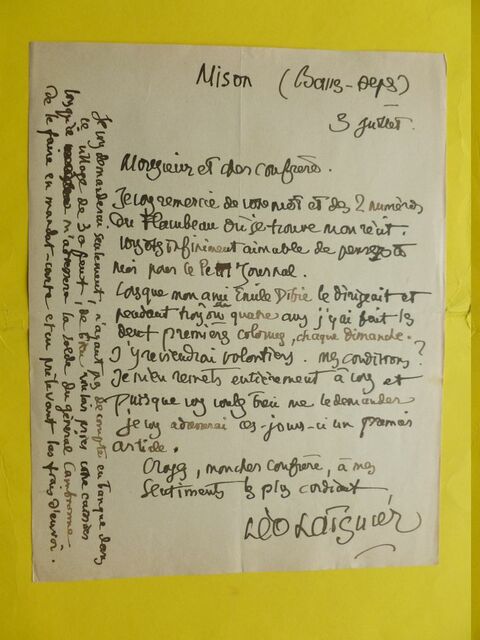 Mison (Basses-Alpes)
3 juillet.
Monsieur et cher confrère.
Je vous remercie de votre mot et des 2 numéros
du Flambeau où je trouve mon récit.
Vous êtes infiniment aimable de penser à
moi pour le Petit Journal.
Lorsque mon ami Émile Dibie le dirigeait et
pendant trois ou quatre ans j'y ai fait les
deux premières colonnes, chaque dimanche.
J'y reviendrai volontiers. Mes conditions ?
Je m'en remets entièrement à vous et
puisque vous voulez bien me le demander
je vous adresserai ces-jours-ci un premier
article.
Croyez, mon cher confrère, à mes
sentiments les plus cordiaux
Léo Larguier
Je vous demanderai seulement, n'ayant pas de compte en banque dans
ce village de 30 feux, de bien vouloir prier votre caissier
lorsqu'il m'adressera la solde du général Cambronne
de le faire en mandat-carte et en prélevant les frais d'envoi.